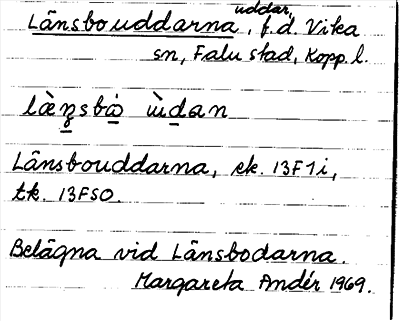 Lånsbouddarna, uddar, f.d. Vika
sn, Falu stad, Kopp. l.
Lånsbouddarna, ek. 13F7i,
tk. 13FSO.
Belägna vid Lånsbodarna.
Margareta Andér 1969.